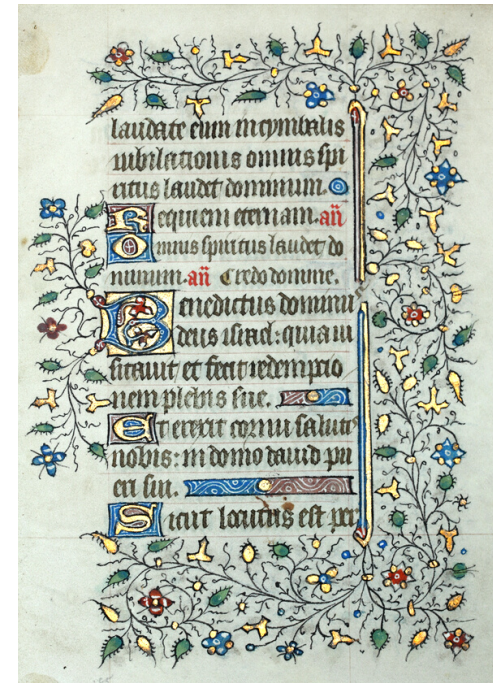 laudate eum in cymbalis
iubilationis omnis spi
ritus laudet dominum.
Requiem eternam. an̄
Omnis spiritus laudet do
minum. an̄ Credo domine.
Benedictus dominu
deus israel: quia ui
sitauit et fecit redemptio
nem plebis sue.
Et erexit cornu salutis
nobis: in domo dauid pu
eri sui.
Sicut locutus est per